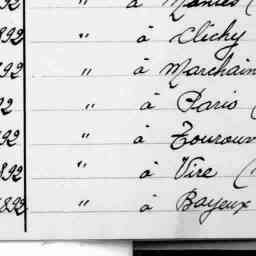 92 " à Nantes (
892 " à Clichy
92 " à Marchain
92 " à Paris (
92 " à Tourouv
892 " à Vire (
1892 " à Bayeux